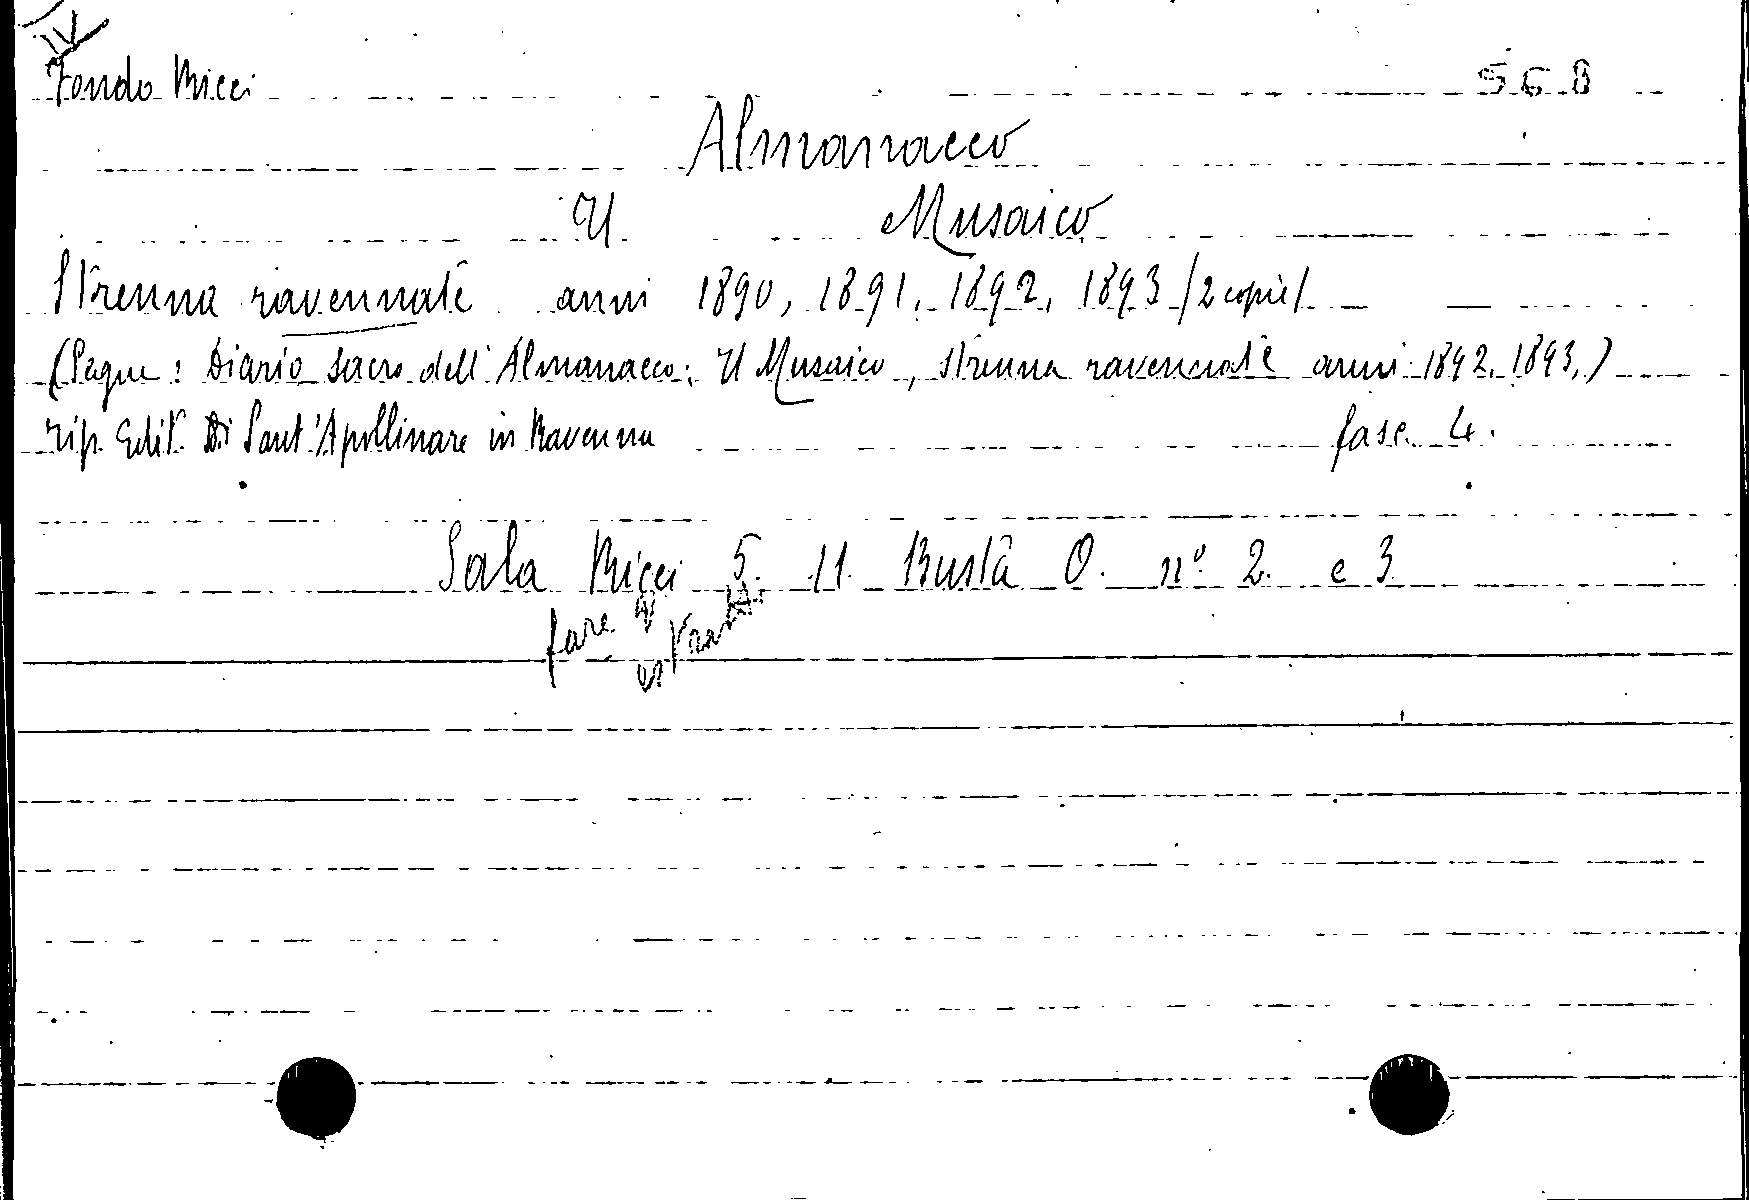 IV
Fondo Ricci 568
Almanacco
Il Musaico
Strenna ravennate anni 1890, 1891, 1892, 1893 /2 copie/
(Segue: Diario sacro dell'Almanacco: Il Musaico, strenna ravennate anni 1892, 1893,)
Tip. Edit. Di Sant'Apollinare in Ravenna fasc. 4.
Sala Ricci 5. 11. Busta O. nº 2. e 3
fare